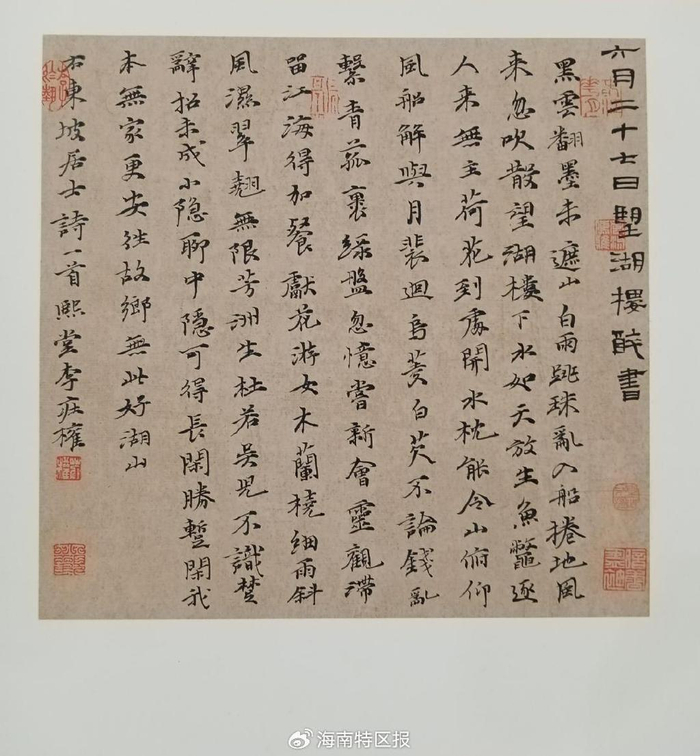 六月二十七日望湖樓醉書
黑雲翻墨未遮山白雨跳珠亂入船捲地風
来忽吹散望湖樓下水如天放生魚鼈逐
人来無主荷花到處開水枕能令山俯仰
風船解與月裴迴烏菱白芡不論錢亂
繫青菰裹綠盤忽憶嘗新會靈觀滯
留江海得加餐獻花游女木蘭橈細雨斜
風濕翠翹無限芳洲生杜若吳兒不識楚
辭招未成小隐聊中隱可得長閑勝蹔閑我
本無家更安往故鄉無此好湖山
右東坡居士詩一首熙堂李庄權
海南特区报